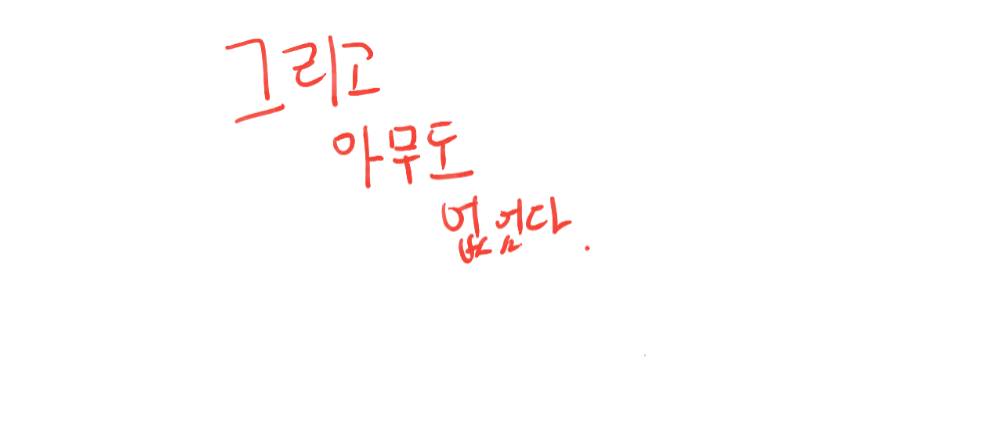 그리고
아무도
없었다.